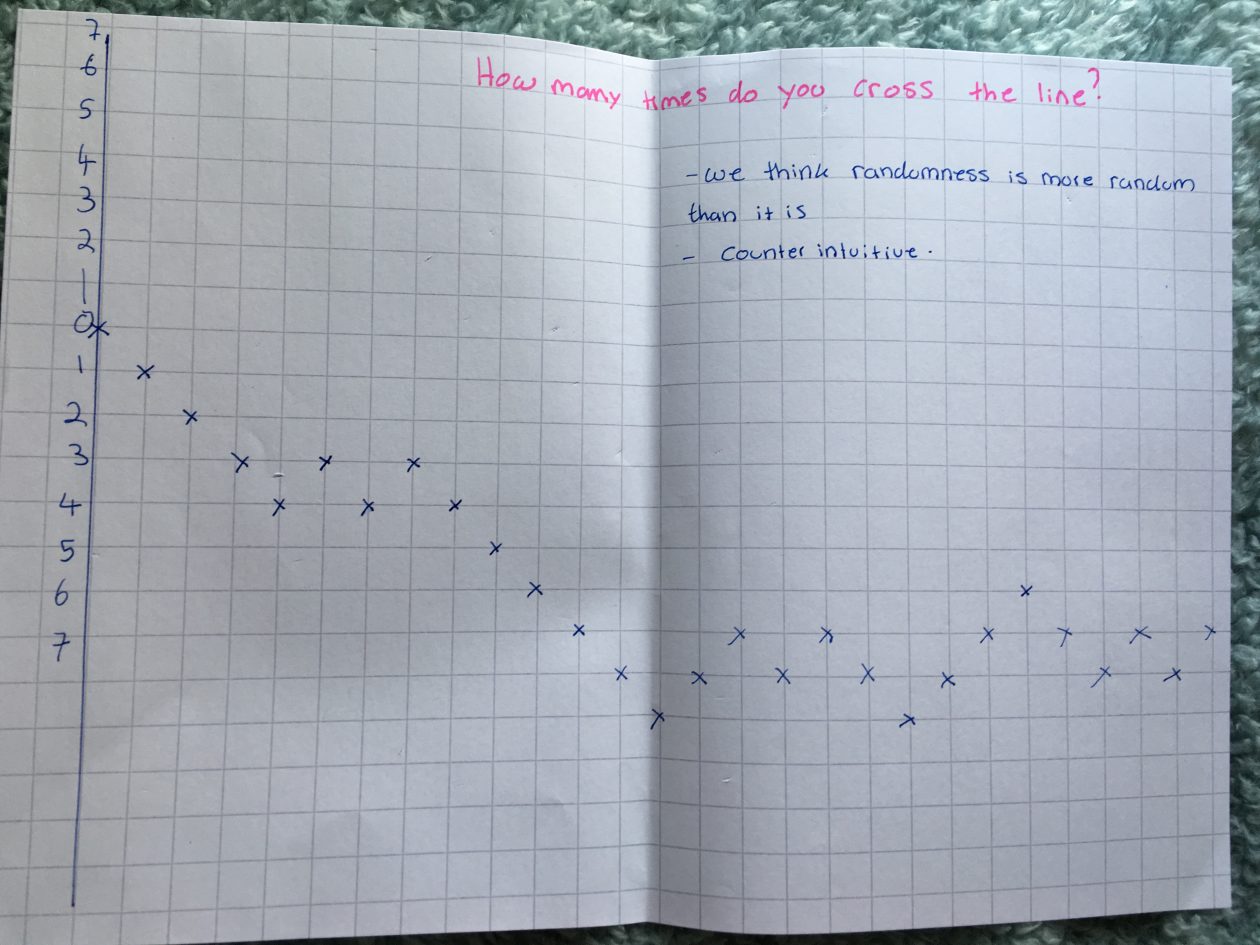 7
6
5
4
3
2
1
0
1
2
3
4
5
6
7
How many times do you cross the line?
- we think randomness is more random
than it is
- Counter intuitive.